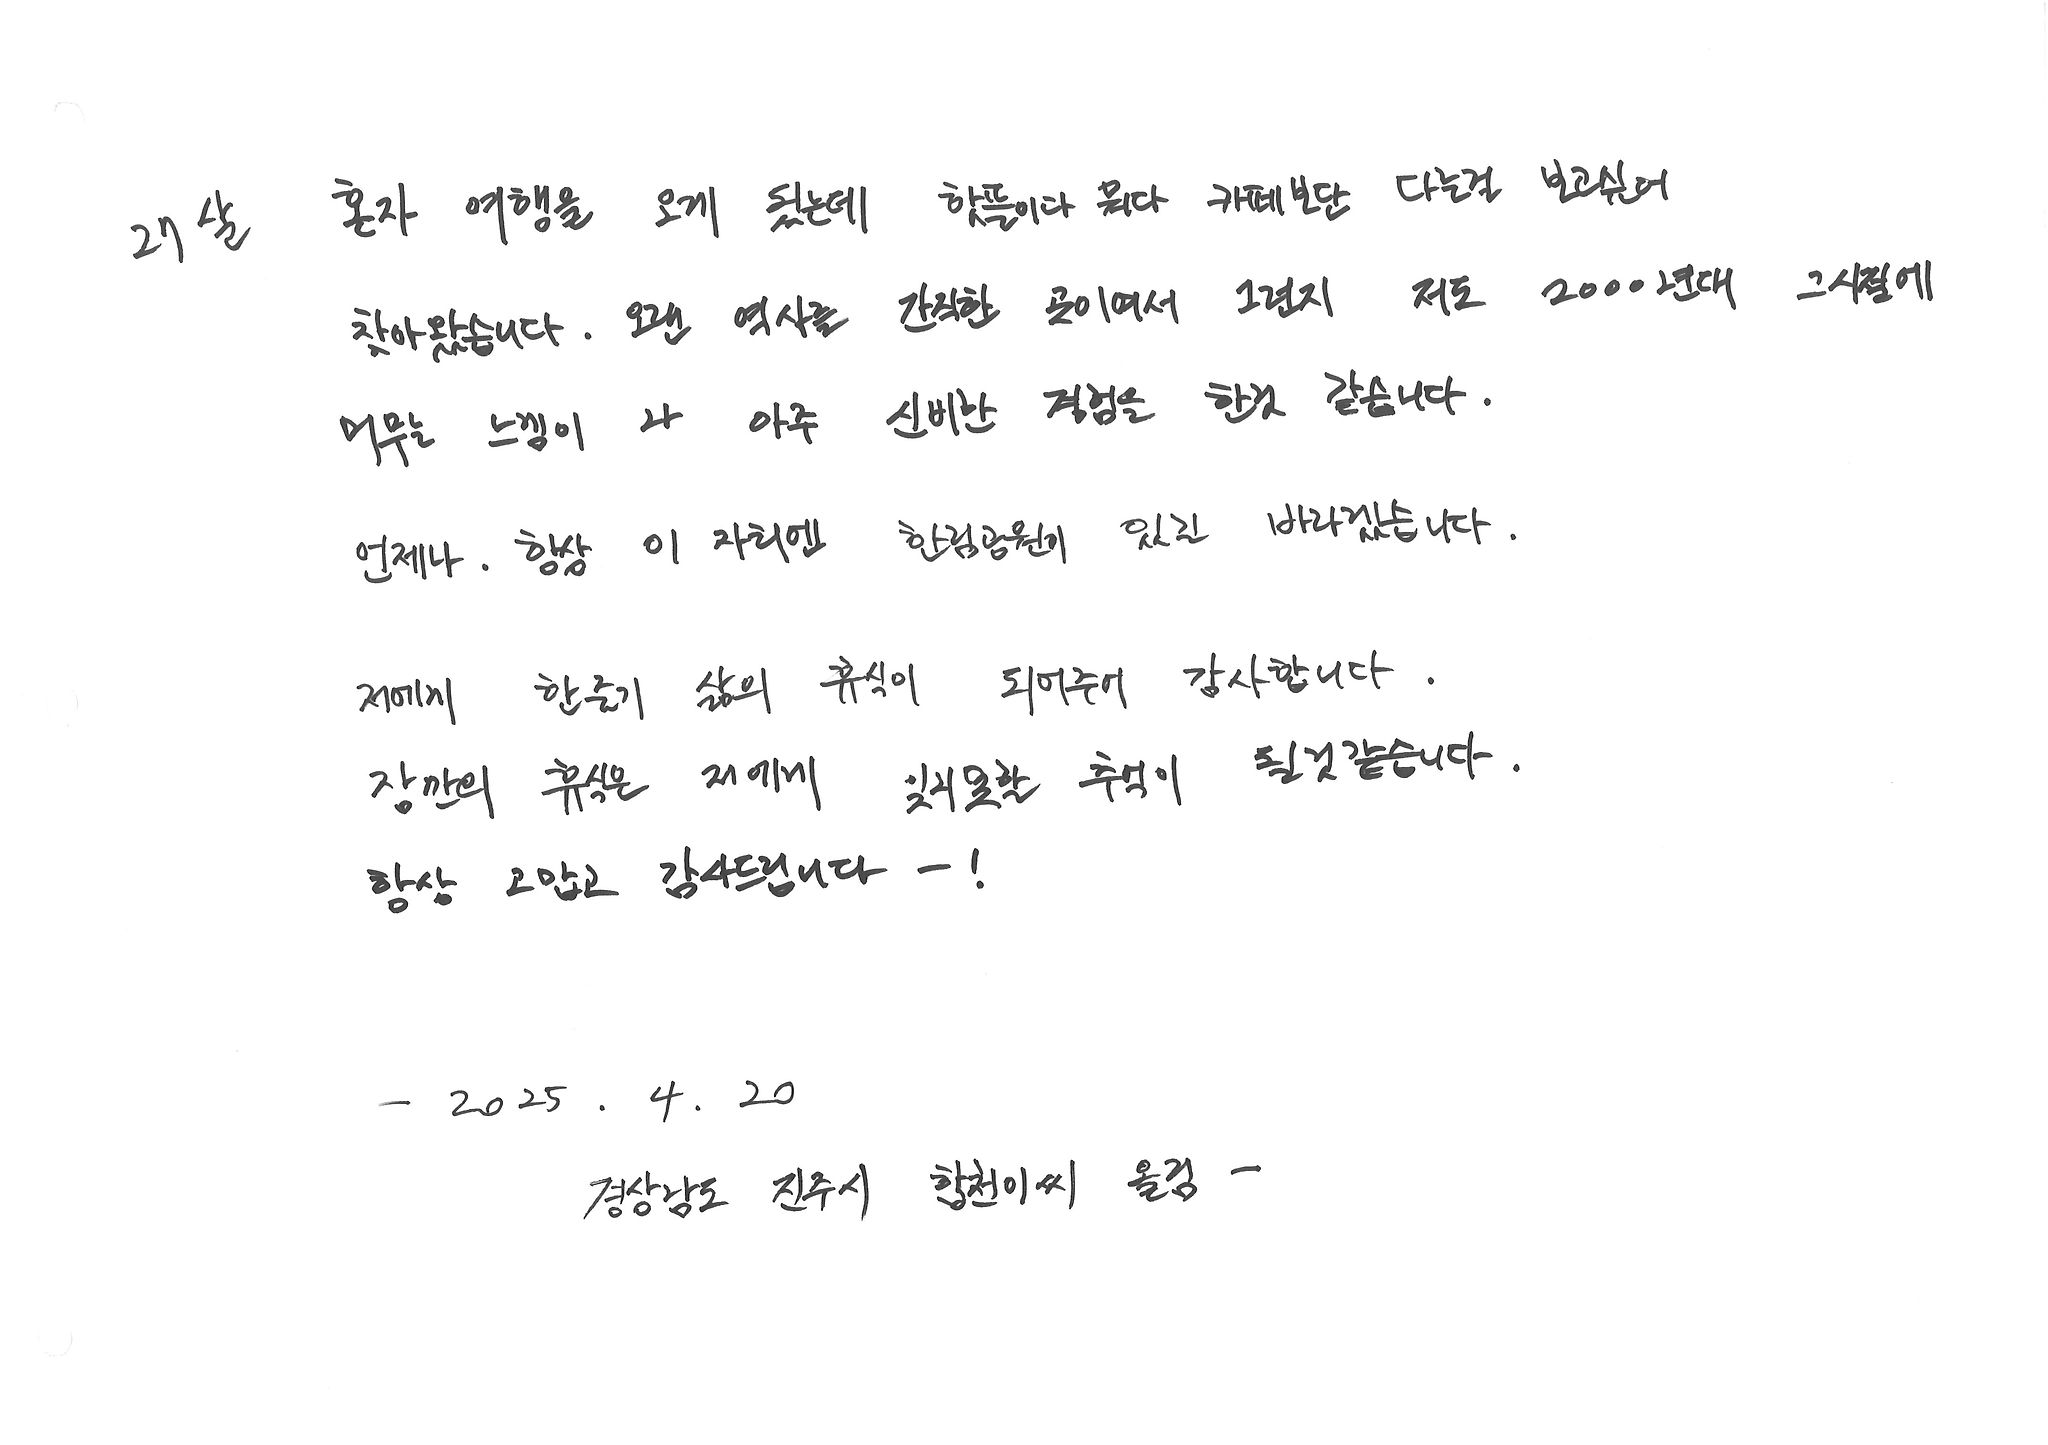 27살 혼자 여행을 오게 됬는데 핫뜰이다 뭐다 카페보단 다는걸 보고싶어
찾아왔습니다. 오랜 역사를 간직한 곳이여서 그런지 저도 2000년대 그시절에
머무는 느낌이 나 아주 신비한 경험을 한것 같습니다.
언제나. 항상 이 자리엔 한림공원이 있길 바라겠습니다.
저에게 한줄기 삶의 휴식이 되어주어 감사합니다.
잠깐의 휴식은 저에게 잊지못할 추억이 될것같습니다.
항상 고맙고 감사드립니다 -!
- 2025. 4. 20
경상남도 진주시 합천이씨 올림 -